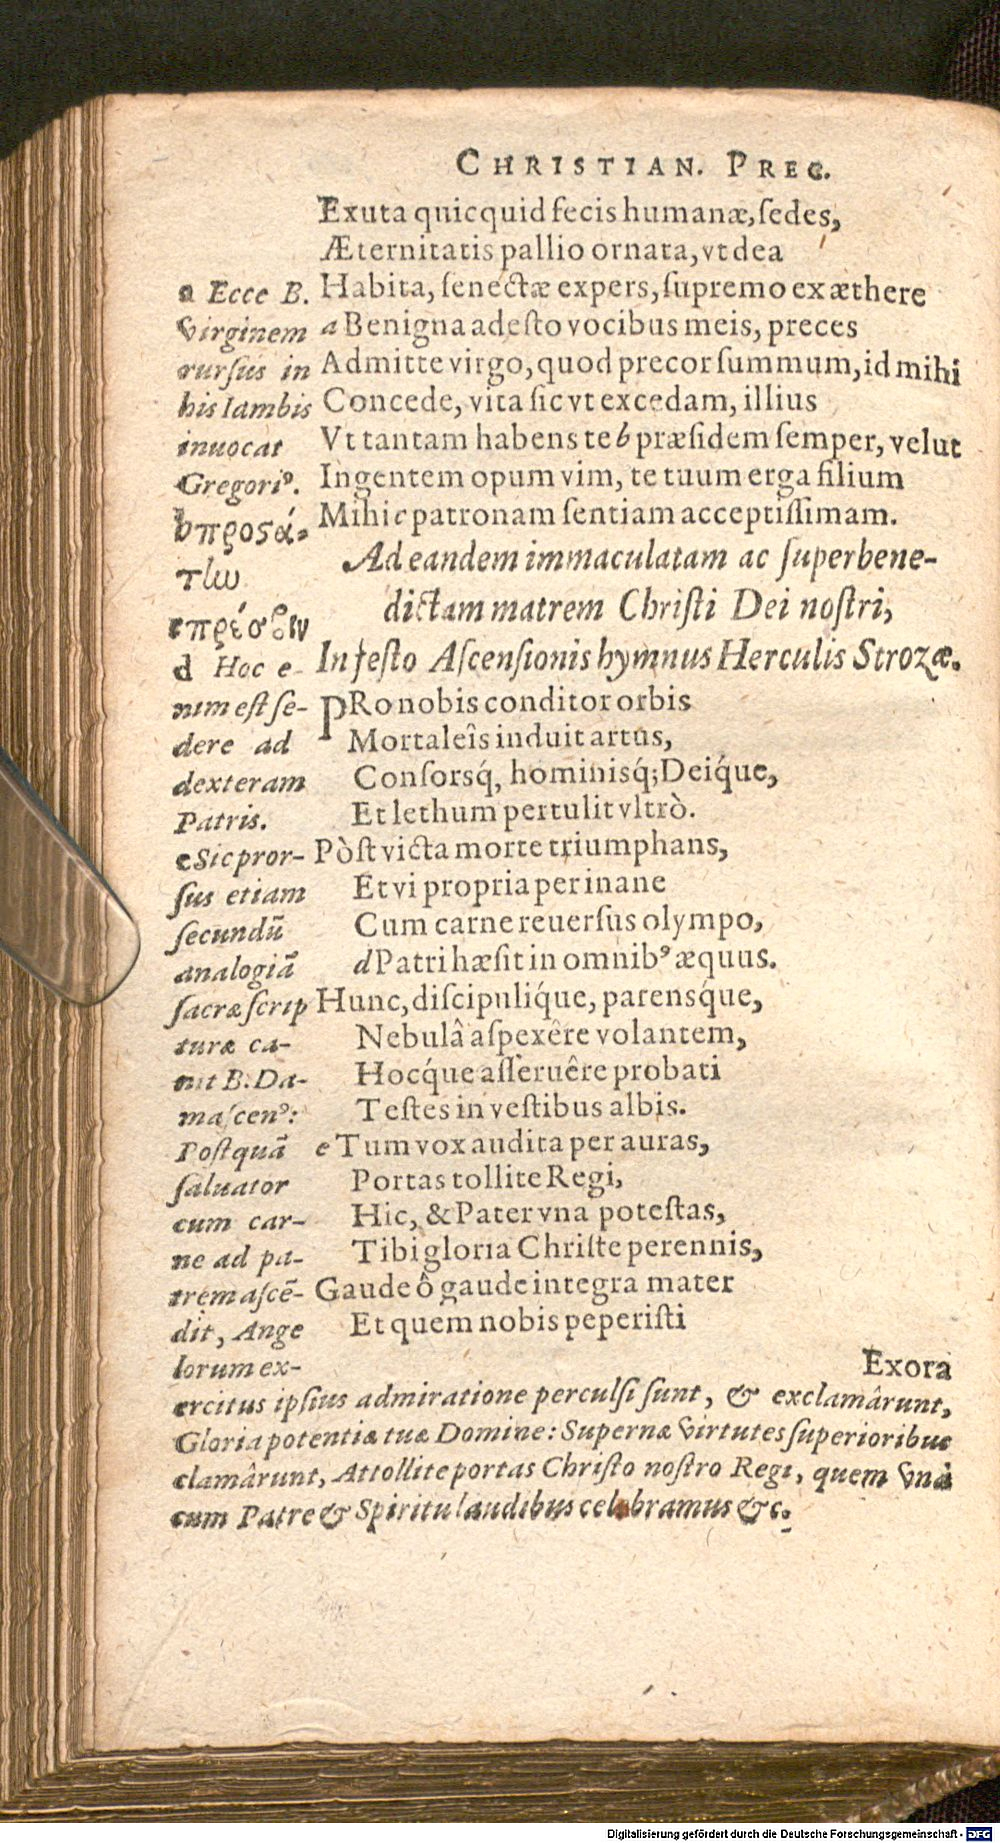 CHRISTIAN. PREC.
Exuta quicquid fecis humanæ, ſedes,
Æternitatis pallio ornata, vt dea
Habita, ſenectæ expers, ſupremo ex æthere
a Benigna adeſto vocibus meis, preces
Admitte virgo, quod precor ſummum, id mihi
Concede, vita ſic vt excedam, illius
Vt tantam habens te b præſidem ſemper, velut
Ingentem opum vim, te tuum erga filium
Mihi c patronam ſentiam acceptiſſimam.
Ad eandem immaculatam ac ſuperbene-
dictam matrem Chriſti Dei noſtri,
In feſto Aſcenſionis hymnus Herculis Strozæ.
PRo nobis conditor orbis
Mortaleîs induit artus,
Conſorsq́, hominisq́; Deiq́ue,
Et lethum pertulit vltrò.
Pòſt victa morte triumphans,
Et vi propria per inane
Cum carne reuerſus olympo,
d Patri hæſit in omnibꝰ æquus.
Hunc, diſcipuliq́ue, parensq́ue,
Nebulâ aſpexêre volantem,
Hocq́ue aſſeruêre probati
Teſtes in veſtibus albis.
e Tum vox audita per auras,
Portas tollite Regi,
Hic, & Pater vna poteſtas,
Tibi gloria Chriſte perennis,
Gaude ô gaude integra mater
Et quem nobis peperiſti
Exora
a Ecce B.
Virginem
rurſus in
his Iambis
inuocat
Gregoriꝰ.
b προσά-
τιω
c
d Hoc e-
nim eſt ſe-
dere ad
dexteram
Patris.
e Sic pror-
ſus etiam
ſecundũ
analogiã
ſacræ ſcrip
turæ ca-
nit B. Da-
maſcenꝰ:
Poſtquã
ſaluator
cum car-
ne ad pa-
trem aſcẽ-
dit, Ange
lorum ex-
ercitus ipſius admiratione perculſi ſunt, & exclamârunt,
Gloria potentiæ tuæ Domine: Supernæ virtutes ſuperioribus
clamârunt, Attollite portas Chriſto noſtro Regi, quem vnà
cum Patre & Spiritu laudibus celebramus &c.
Digitalisierung gefördert durch die Deutsche Forschungsgemeinschaft - DFG